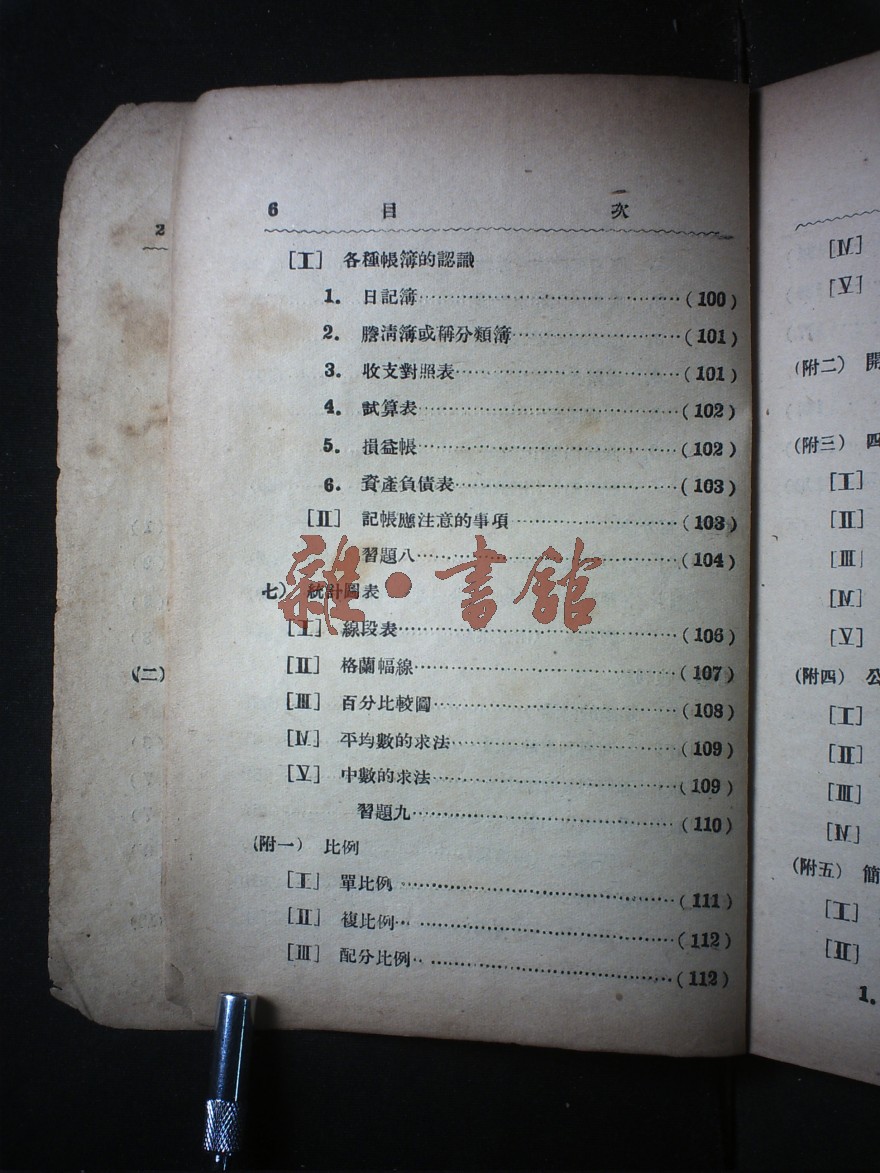 6 目 次
[I] 各種帳簿的認識
1. 日記簿……(100)
2. 謄清簿或稱分類簿……(101)
3. 收支對照表……(101)
4. 試算表……(102)
5. 損益帳……(102)
6. 資產負債表……(103)
[II] 記帳應注意的事項……(103)
習題八……(104)
七) 統計圖表
[I] 線段表……(106)
[II] 格蘭幅線……(107)
[III] 百分比較圖……(108)
[IV] 平均數的求法……(109)
[V] 中數的求法……(109)
習題九……(110)
(附一) 比例
[I] 單比例……(111)
[II] 複比例……(112)
[III] 配分比例……(112)
雜·書館
2
(二)
[IV]
[V]
(附二) 開
(附三) 四
[I]
[II]
[III]
[IV]
[V]
(附四) 公
[I]
[II]
[III]
[IV]
(附五) 簡
[I]
[II]
1.